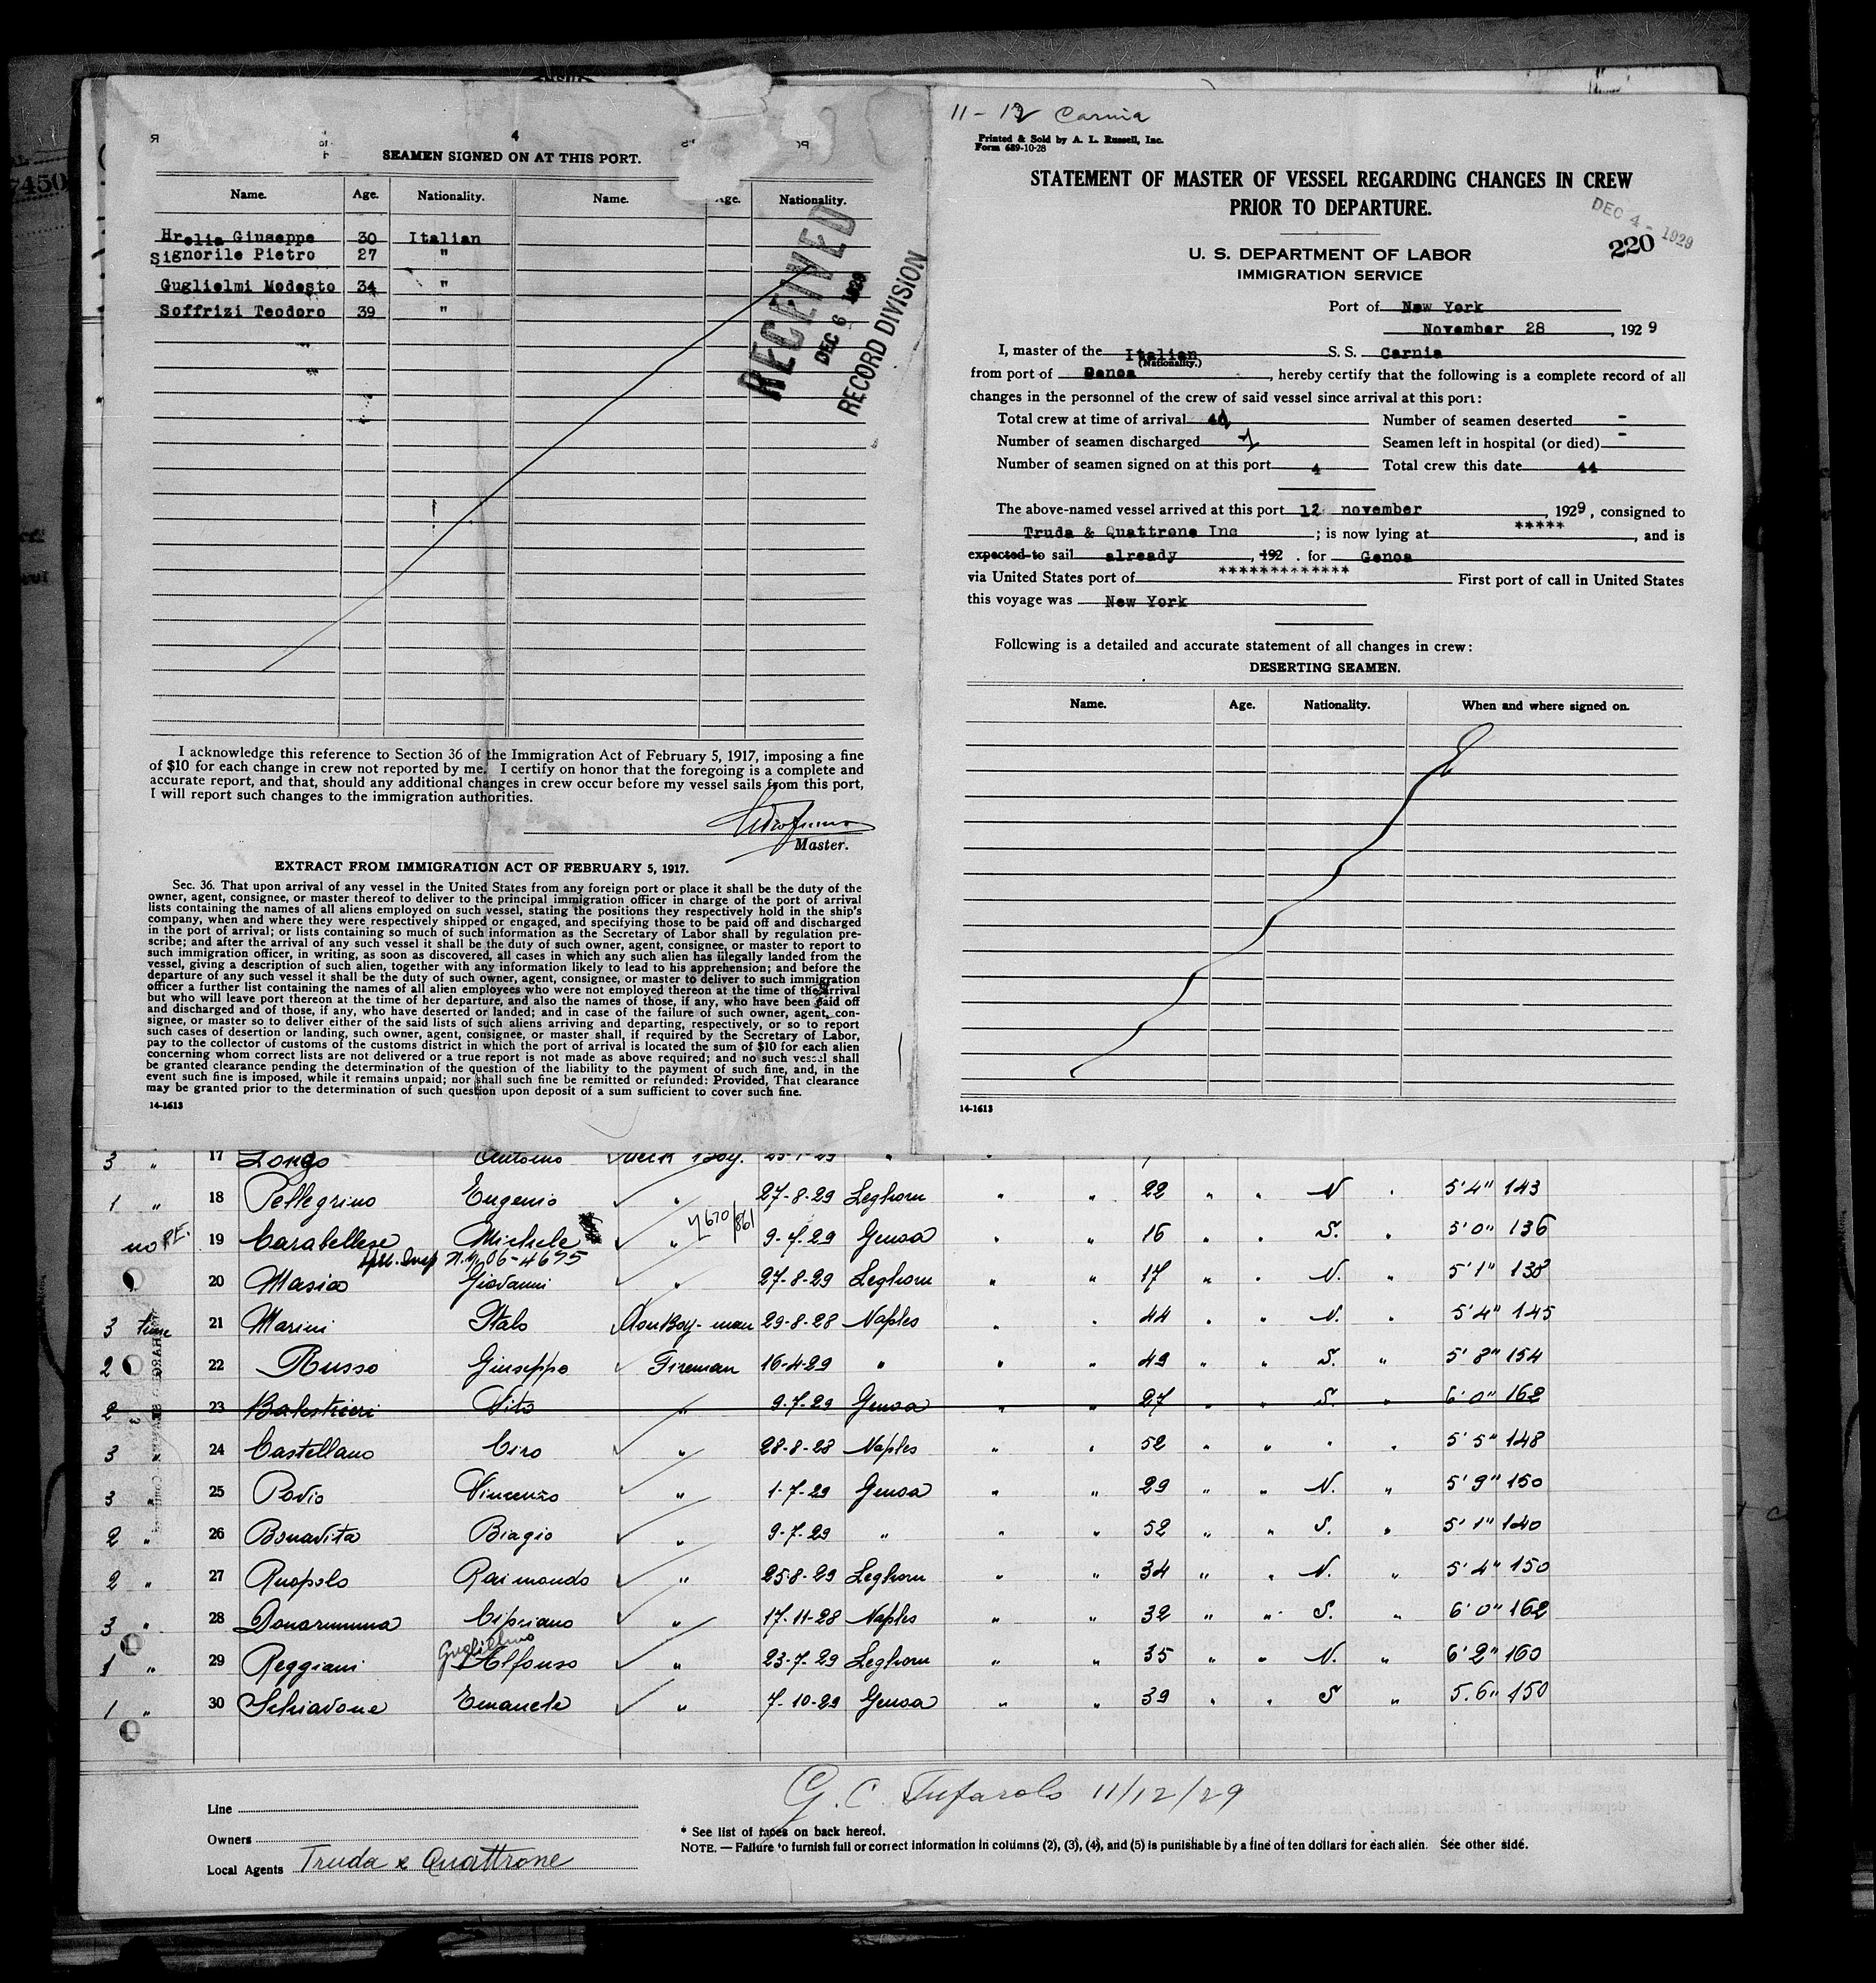 4
SEAMEN SIGNED ON AT THIS PORT.
Name. Age. Nationality. Name. Age. Nationality.
Hrelia Giuseppe 30 Italian
Signorile Pietro 27 "
Guglielmi Modesto 34 "
Soffrizi Teodoro 39 "
RECEIVED
DEC 6 1929
RECORD DIVISION
I acknowledge this reference to Section 36 of the Immigration Act of February 5, 1917, imposing a fine
of $10 for each change in crew not reported by me. I certify on honor that the foregoing is a complete and
accurate report, and that, should any additional changes in crew occur before my vessel sails from this port,
I will report such changes to the immigration authorities.
Master.
EXTRACT FROM IMMIGRATION ACT OF FEBRUARY 5, 1917.
Sec. 36. That upon arrival of any vessel in the United States from any foreign port or place it shall be the duty of the
owner, agent, consignee, or master thereof to deliver to the principal immigration officer in charge of the port of arrival
lists containing the names of all aliens employed on such vessel, stating the positions they respectively hold in the ship's
company, when and where they were respectively shipped or engaged, and specifying those to be paid off and discharged
in the port of arrival; or lists containing so much of such information as the Secretary of Labor shall by regulation pre-
scribe; and after the arrival of any such vessel it shall be the duty of such owner, agent, consignee, or master to report to
such immigration officer, in writing, as soon as discovered, all cases in which any such alien has illegally landed from the
vessel, giving a description of such alien, together with any information likely to lead to his apprehension; and before the
departure of any such vessel it shall be the duty of such owner, agent, consignee, or master to deliver to such immigration
officer a further list containing the names of all alien employees who were not employed thereon at the time of the arrival
but who will leave port thereon at the time of her departure, and also the names of those, if any, who have been paid off
and discharged and of those, if any, who have deserted or landed; and in case of the failure of such owner, agent, con-
signee, or master so to deliver either of the said lists of such aliens arriving and departing, respectively, or so to report
such cases of desertion or landing, such owner, agent, consignee, or master shall, if required by the Secretary of Labor,
pay to the collector of customs of the customs district in which the port of arrival is located the sum of $10 for each alien
concerning whom correct lists are not delivered or a true report is not made as above required; and no such vessel shall
be granted clearance pending the determination of the question of the liability to the payment of such fine, and, in the
event such fine is imposed, while it remains unpaid; nor shall such fine be remitted or refunded: Provided, That clearance
may be granted prior to the determination of such question upon deposit of a sum sufficient to cover such fine.
14-1613
11 - 12 Carnia
Printed & Sold by A. L. Russell, Inc.
Form 689-10-28
STATEMENT OF MASTER OF VESSEL REGARDING CHANGES IN CREW
PRIOR TO DEPARTURE.
DEC 4 - 1929
220
U. S. DEPARTMENT OF LABOR
IMMIGRATION SERVICE
Port of New York
November 28, 1929
I, master of the Italian S. S. Carnia
(Nationality.)
from port of Genoa, hereby certify that the following is a complete record of all
changes in the personnel of the crew of said vessel since arrival at this port:
Total crew at time of arrival 41 Number of seamen deserted -
Number of seamen discharged 1 Seamen left in hospital (or died) -
Number of seamen signed on at this port 4 Total crew this date 44
The above-named vessel arrived at this port 12 november, 1929, consigned to
Truda & Quattrone Inc; is now lying at *****, and is
expected to sail already, 192 . for Genoa
via United States port of ************* First port of call in United States
this voyage was New York
Following is a detailed and accurate statement of all changes in crew:
DESERTING SEAMEN.
Name. Age. Nationality. When and where signed on.
14-1613
3 " 17 Longo Antonio Deck Boy.
1 " 18 Pellegrino Eugenio " 27-8-29 Leghorn " " 22 " " N " 5'4" 143
no P.E. 19 Carabellese Michele " 9-7-29 Genoa " " 16 " " S. " 5'0" 136
20 Masia Giovanni " 27-8-29 Leghorn " " 17 " " N. " 5'1" 138
3 time 21 Marini Italo Donkey-man 29-8-28 Naples " " 44 " " N. " 5'4" 145
2 22 Russo Giuseppe Fireman 16-4-29 " " 49 " " S. " 5'8" 154
2 23 Balestrieri Vito " 9-7-29 Genoa " " 27 " " S. " 6'0" 162
3 " 24 Castellano Ciro " 28-8-28 Naples " " 52 " " " " 5'5" 148
3 " 25 Povio Vincenzo " 1-7-29 Genoa " " 29 " " N. " 5'9" 150
2 " 26 Bonavita Biagio " 9-7-29 " " " 52 " " S. " 5'1" 140
2 " 27 Ruopolo Raimondo " 25-8-29 Leghorn " " 34 " " N. " 5'4" 150
3 " 28 Donarumma Cipriano " 17-11-28 Naples " " 32 " " S. " 6'0" 162
Guglielmo
1 " 29 Reggiani Alfonso " 23-7-29 Leghorn " " 35 " " N. " 6'2" 160
1 " 30 Schiavone Emanuele " 7-10-29 Genoa " " 39 " " S " 5.6" 150
G. C. Tufarolo 11/12/29
Line
Owners
Local Agents Truda & Quattrone
* See list of races on back hereof.
NOTE. — Failure to furnish full or correct information in columns (2), (3), (4), and (5) is punishable by a fine of ten dollars for each alien. See other side.